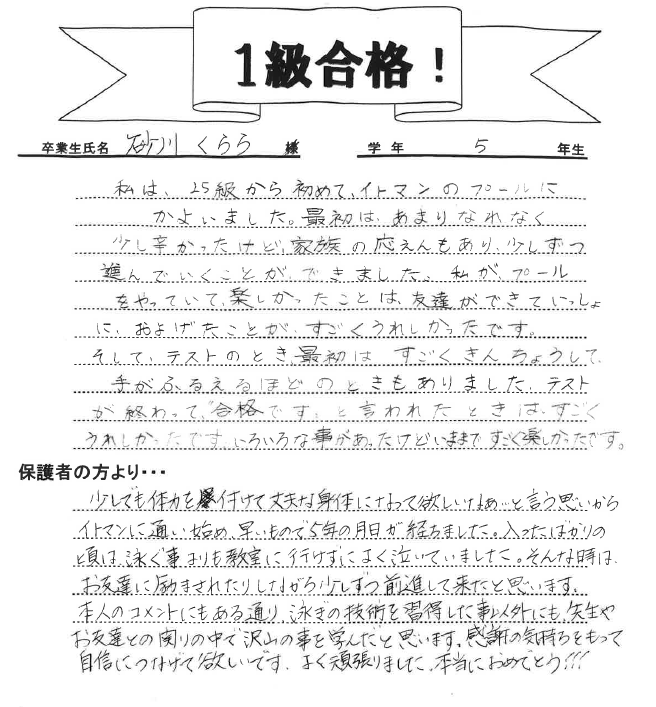 1級合格！
卒業生氏名 砂川 くらら 様 学年 5 年生
私は、25級から初めて、イトマンのプールに
かよいました。最初は、あまりなれなく
少し辛かったけど、家族の応えんもあり、少しずつ
進んでいくことができました。私が、プール
をやっていて、楽しかったことは、友達ができていっしょ
に、およげたことが、すごくうれしかったです。
そして、テストのとき、最初は すごくきんちょうして、
手がふるえるほどのときもありました。テスト
が終わって、"合格です。"と言われたときは、すごく
うれしかったです。いろいろな事があったけどいままですごく楽しかったです。
保護者の方より・・・
少しでも体力を付けて丈夫な身体になって欲しいなぁ…と言う思いから
イトマンに通い始め、早いもので5年の月日が経ちました。入ったばかりの
頃は、泳ぐ事よりも教室に行けずによく泣いていました。そんな時は、
お友達に励まされたりしながら少しずつ前進して来たと思います。
本人のコメントにもある通り、泳ぎの技術を習得した事以外にも、先生や
お友達との関りの中で沢山の事を学んだと思います。感謝の気持ちをもって
自信につなげて欲しいです。よく頑張りました。本当におめでとう!!!